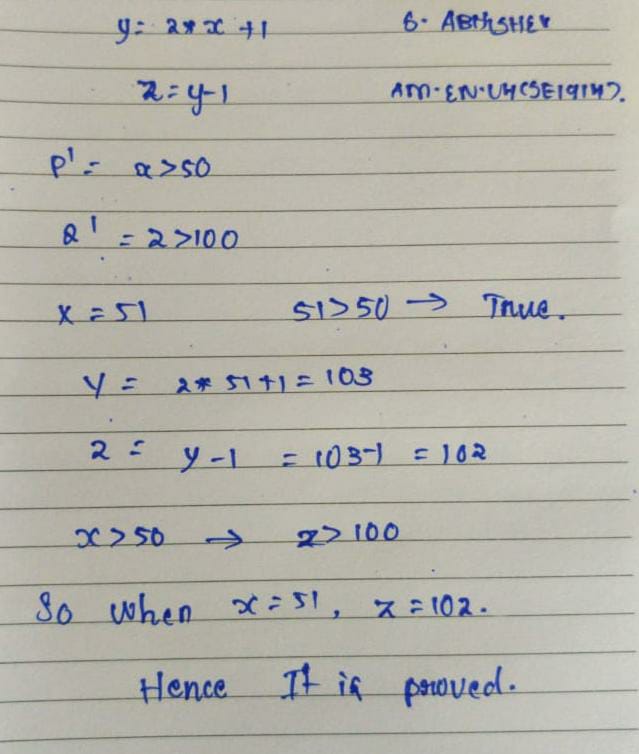 y = 2 * x + 1 S. ABHISHEK
z = y-1 AM.EN.U4CSE19147.
P' = x > 50
Q' = z > 100
x = 51 51 > 50 → True.
y = 2 * 51 + 1 = 103
z = y - 1 = 103-1 = 102
x > 50 → z > 100
So when x = 51, z = 102.
Hence It is proved.